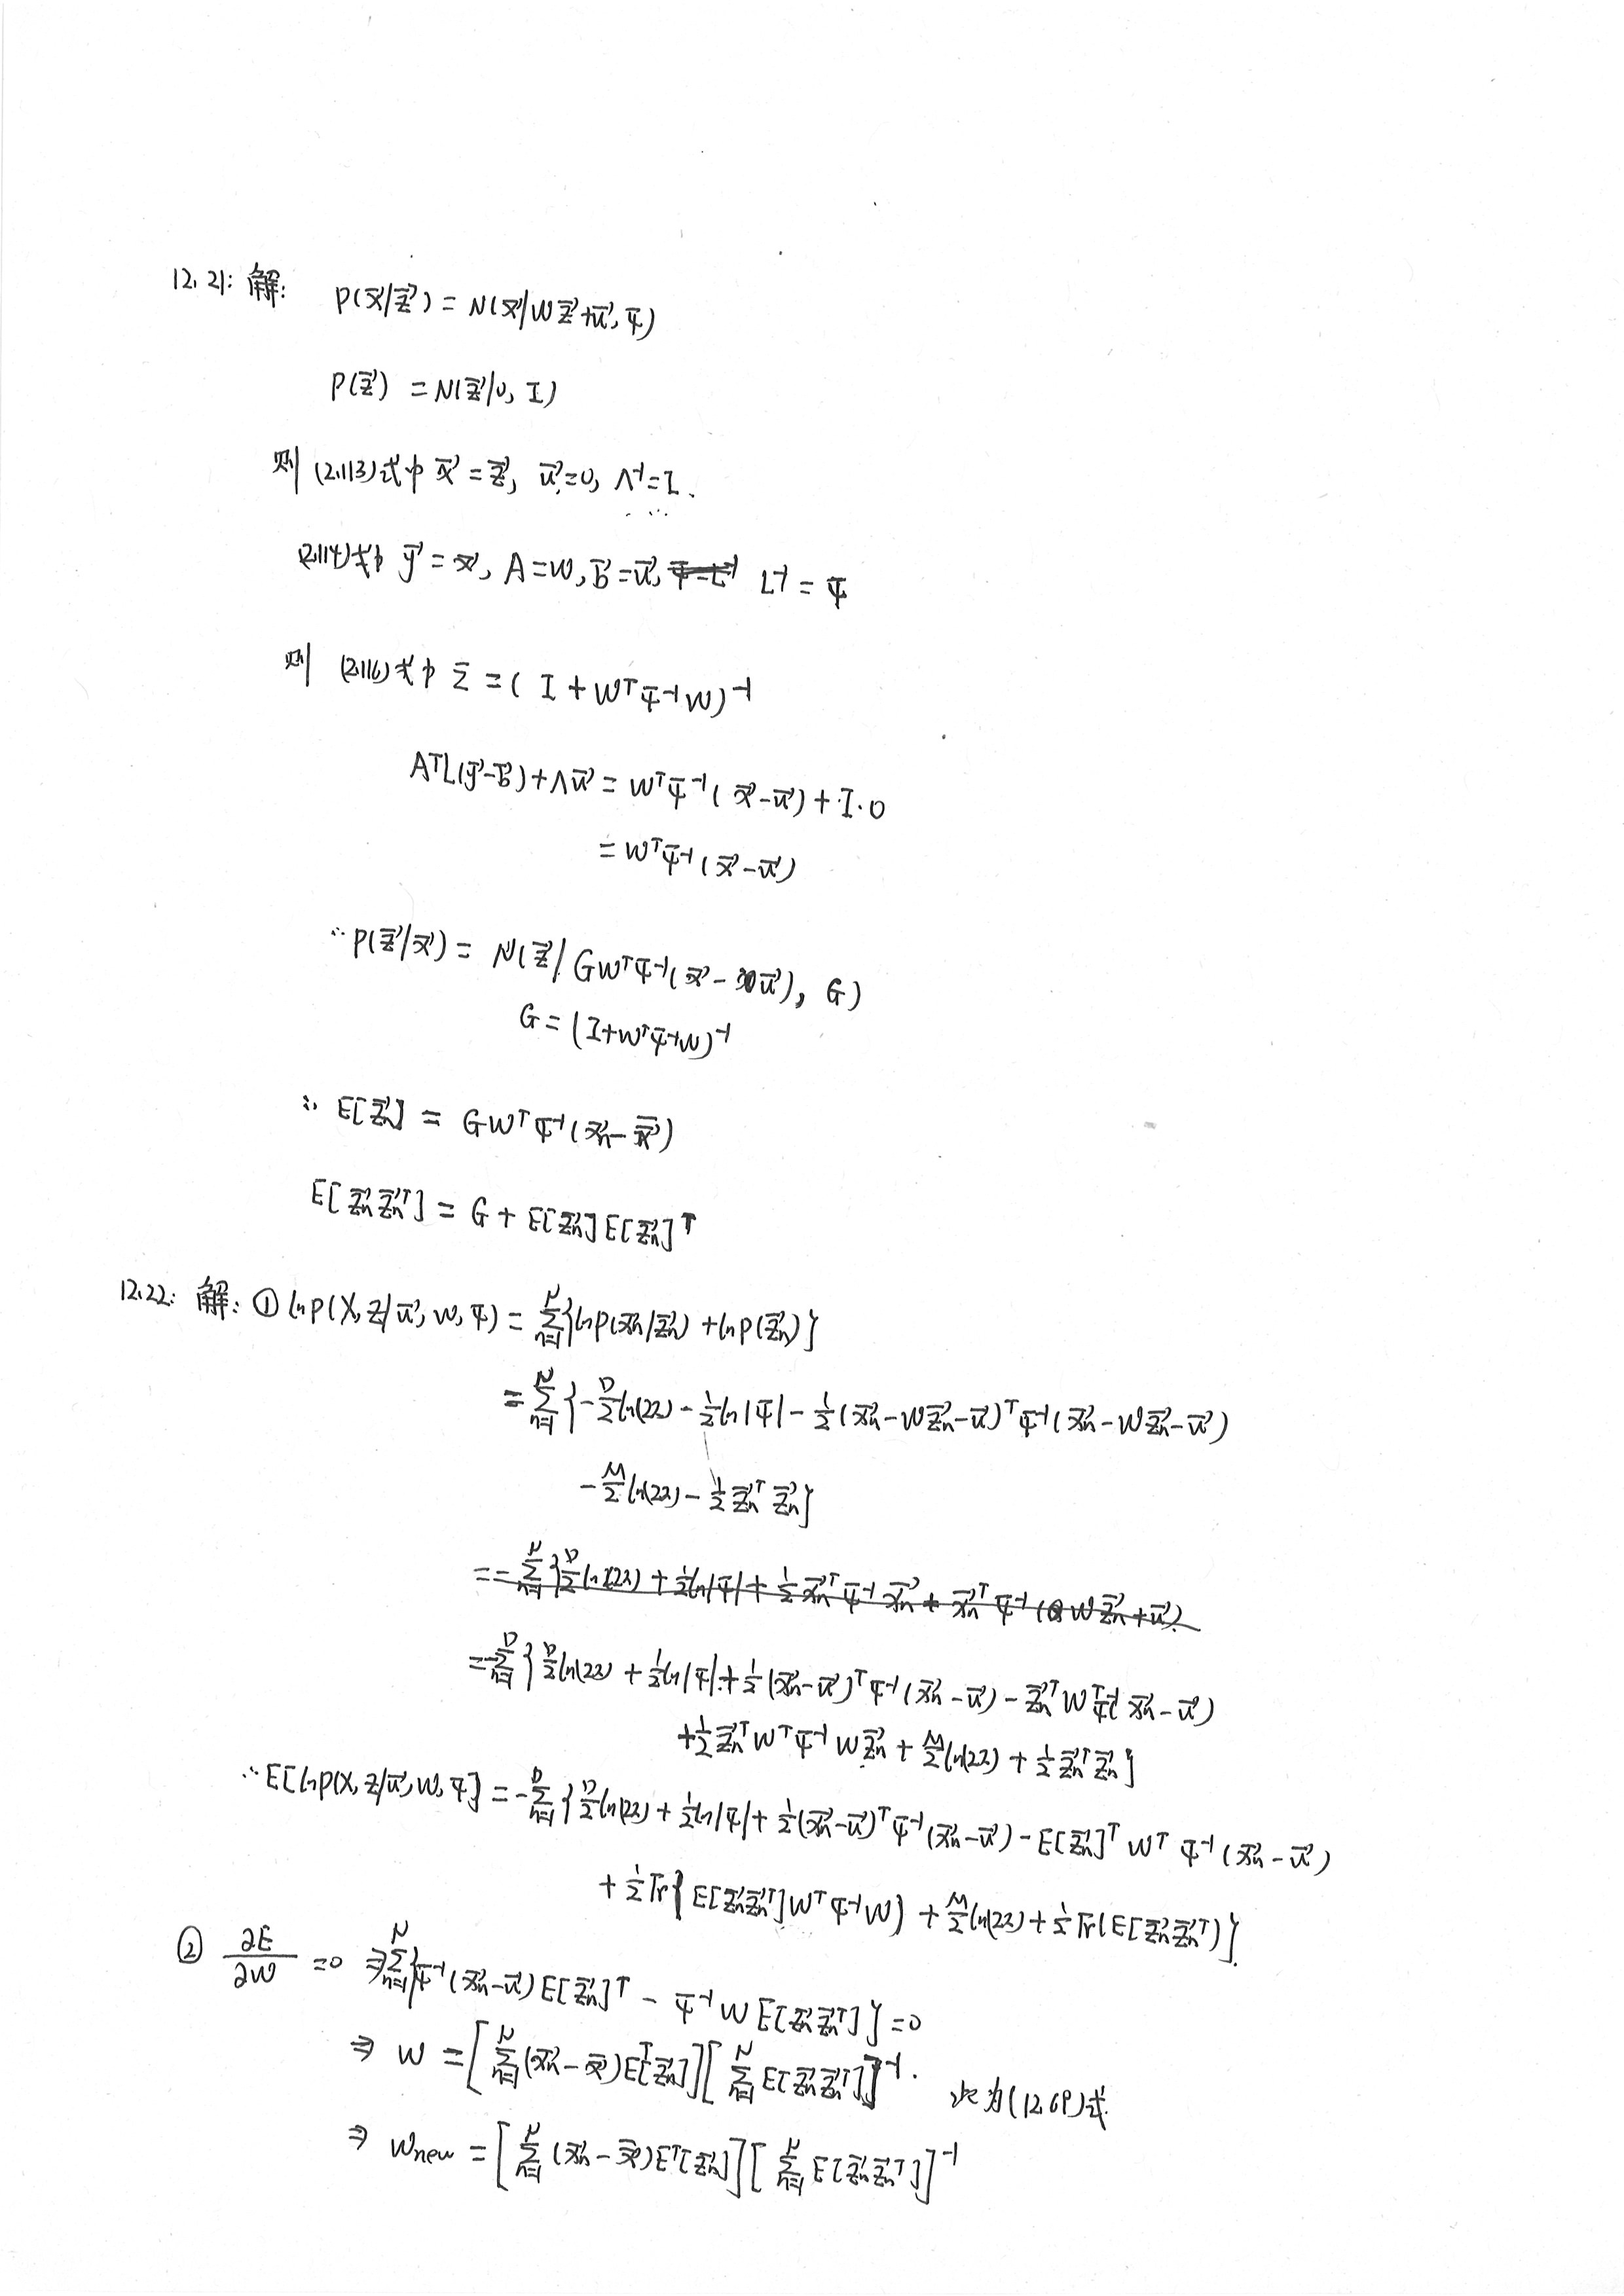 12.21: 解: P(x⃗|z⃗) = N(x⃗|Wz⃗+u⃗, Ψ)
P(z⃗) = N(z⃗|0, I)
则 (2.113)式中 x⃗ = z⃗, u⃗=0, Λ⁻¹=I.
(2.114)式中 y⃗ = x⃗, A=W, b⃗=u⃗, L⁻¹ = Ψ
则 (2.116)式中 Σ = ( I + WᵀΨ⁻¹W)⁻¹
AᵀL(y⃗-b⃗)+Λu⃗ = WᵀΨ⁻¹( x⃗-u⃗) + I·0
= WᵀΨ⁻¹(x⃗-u⃗)
∴ P(z⃗|x⃗) = N(z⃗| GWᵀΨ⁻¹(x⃗-u⃗), G)
G = (I+WᵀΨ⁻¹W)⁻¹
∴ E[z⃗n] = GWᵀΨ⁻¹(x⃗n-x̄)
E[z⃗n z⃗nᵀ] = G + E[z⃗n]E[z⃗n]ᵀ
12.22: 解: ① ln P(X,Z|u⃗,W,Ψ) = Σₙ₌₁ᴺ{ln P(x⃗n|z⃗n) + ln P(z⃗n)}
= Σₙ₌₁ᴺ{-D/2 ln(2π) - 1/2 ln|Ψ| - 1/2 (x⃗n-Wz⃗n-u⃗)ᵀΨ⁻¹(x⃗n-Wz⃗n-u⃗)
- M/2 ln(2π) - 1/2 z⃗nᵀ z⃗n}
= -Σₙ₌₁ᴺ{D/2 ln(2π) + 1/2 ln|Ψ| + 1/2 x⃗nᵀΨ⁻¹x⃗n + x⃗nᵀΨ⁻¹(Wz⃗n+u⃗)
= -Σₙ₌₁ᴰ{D/2 ln(2π) + 1/2 ln|Ψ| + 1/2 (x⃗n-u⃗)ᵀΨ⁻¹(x⃗n-u⃗) - z⃗nᵀWᵀΨ⁻¹(x⃗n-u⃗)
+ 1/2 z⃗nᵀWᵀΨ⁻¹Wz⃗n + M/2 ln(2π) + 1/2 z⃗nᵀz⃗n}
∴ E[ln P(X,Z|u⃗,W,Ψ] = -Σₙ₌₁ᴰ{D/2 ln(2π) + 1/2 ln|Ψ| + 1/2(x⃗n-u⃗)ᵀΨ⁻¹(x⃗n-u⃗) - E[z⃗n]ᵀWᵀΨ⁻¹(x⃗n-u⃗)
+ 1/2 Tr{E[z⃗nz⃗nᵀ]WᵀΨ⁻¹W} + M/2 ln(2π) + 1/2 Tr(E[z⃗nz⃗nᵀ)}
② ∂E/∂W = 0 ⇒ Σₙ₌₁ᴺ{Ψ⁻¹(x⃗n-u⃗)E[z⃗n]ᵀ - Ψ⁻¹WE[z⃗nz⃗nᵀ]} = 0
⇒ W = [Σₙ₌₁ᴺ(x⃗n-x̄)Eᵀ[z⃗n]][Σₙ₌₁ᴺE[z⃗nz⃗nᵀ]]⁻¹. 此为(12.69)式
⇒ Wnew = [Σₙ₌₁ᴺ(x⃗n-x̄)Eᵀ[z⃗n]][Σₙ₌₁ᴺE[z⃗nz⃗nᵀ]]⁻¹